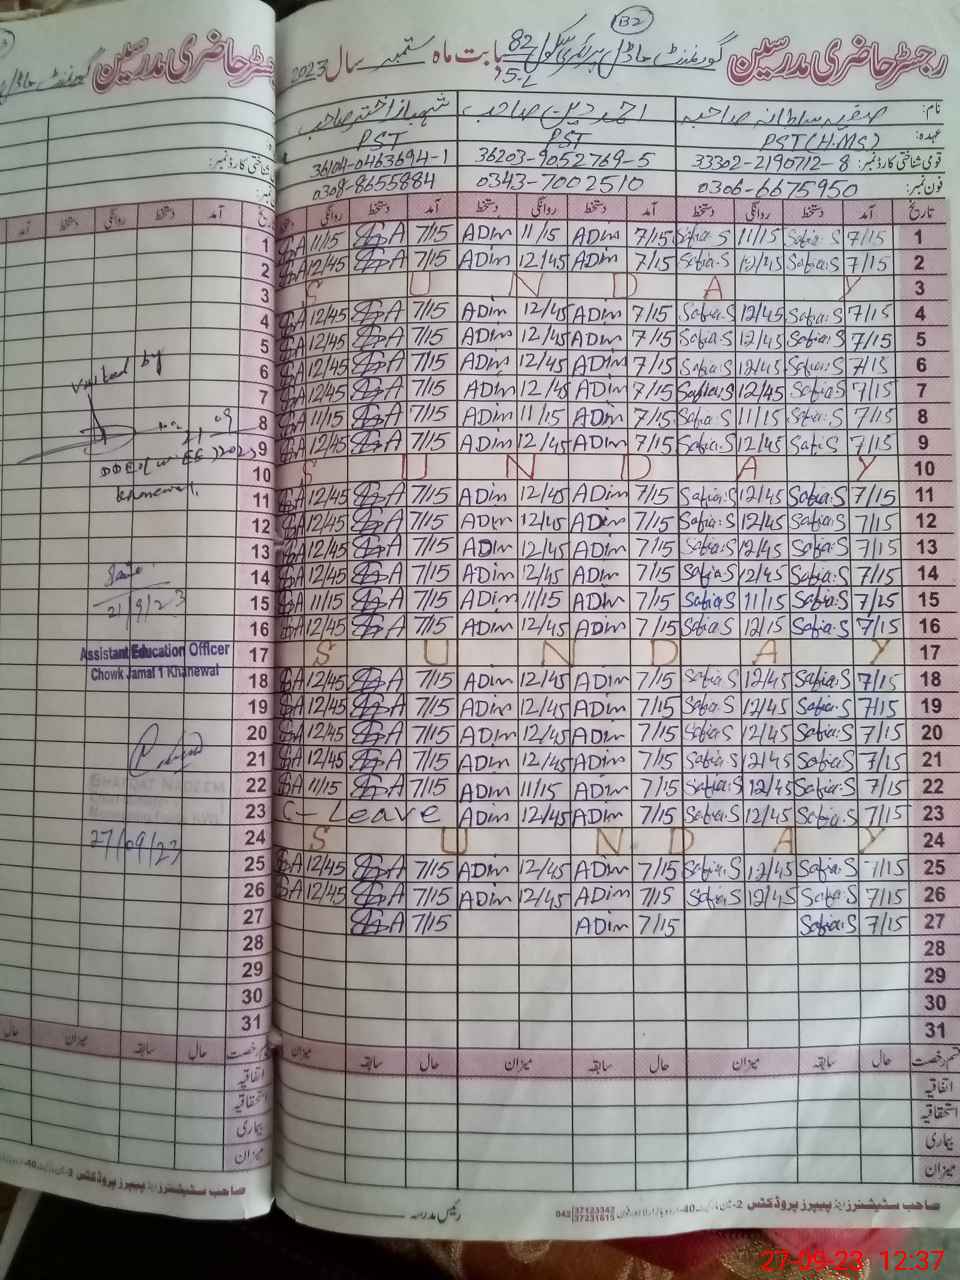 B2
رجسٹر حاضری مدرسین گورنمنٹ ماڈل پرائمری سکول 82 بابت ماہ ستمبر سال 2023
15-L
نام: صفیہ سلطانہ صاحبہ صاحب شہباز اختر صاحب
عہدہ: PST(H.MS) PST PST
قومی شناختی کارڈ نمبر: 33302-2190712-8 36203-9052769-5 36104-0463694-1
فون نمبر: 0306-6675950 0343-7002510 0308-8655884
تاریخ آمد دستخط روانگی دستخط آمد دستخط روانگی دستخط آمد دستخط روانگی دستخط
1 7/15 Safia.S 11/15 Safia.S 7/15 ADim 11/15 ADim 7/15 SGA 11/15 SGA
2 7/15 Safia.S 12/45 Safia.S 7/15 ADim 12/45 ADim 7/15 SGA 12/45 SGA
3 S U N D A Y
4 7/15 Safia.S 12/45 Safia.S 7/15 ADim 12/45 ADim 7/15 SGA 12/45 SGA
5 7/15 Safia.S 12/45 Safia.S 7/15 ADim 12/45 ADim 7/15 SGA 12/45 SGA
6 7/15 Safia.S 12/45 Safia.S 7/15 ADim 12/45 ADim 7/15 SGA 12/45 SGA
7 7/15 Safia.S 12/45 Safia.S 7/15 ADim 12/45 ADim 7/15 SGA 12/45 SGA
8 7/15 Safia.S 11/15 Safia.S 7/15 ADim 11/15 ADim 7/15 SGA 11/15 SGA
9 7/15 Safia.S 12/45 Safia.S 7/15 ADim 12/45 ADim 7/15 SGA 12/45 SGA
10 S U N D A Y
11 7/15 Safia.S 12/45 Safia.S 7/15 ADim 12/45 ADim 7/15 SGA 12/45 SGA
12 7/15 Safia.S 12/45 Safia.S 7/15 ADim 12/45 ADim 7/15 SGA 12/45 SGA
13 7/15 Safia.S 12/45 Safia.S 7/15 ADim 12/45 ADim 7/15 SGA 12/45 SGA
14 7/15 Safia.S 12/45 Safia.S 7/15 ADim 12/45 ADim 7/15 SGA 12/45 SGA
15 7/25 Safia.S 11/15 Safia.S 7/15 ADim 11/15 ADim 7/15 SGA 11/15 SGA
16 7/15 Safia.S 12/15 Safia.S 7/15 ADim 12/45 ADim 7/15 SGA 12/45 SGA
17 S U N D A Y
18 7/15 Safia.S 12/45 Safia.S 7/15 ADim 12/45 ADim 7/15 SGA 12/45 SGA
19 7/15 Safia.S 12/45 Safia.S 7/15 ADim 12/45 ADim 7/15 SGA 12/45 SGA
20 7/15 Safia.S 12/45 Safia.S 7/15 ADim 12/45 ADim 7/15 SGA 12/45 SGA
21 7/15 Safia.S 12/45 Safia.S 7/15 ADim 12/45 ADim 7/15 SGA 12/45 SGA
22 7/15 Safia.S 12/45 Safia.S 7/15 ADim 11/15 ADim 7/15 SGA 11/15 SGA
23 7/15 Safia.S 12/45 Safia.S 7/15 ADim 12/45 ADim C-Leave
24 S U N D A Y
25 7/15 Safia.S 12/45 Safia.S 7/15 ADim 12/45 ADim 7/15 SGA 12/45 SGA
26 7/15 Safia.S 12/45 Safia.S 7/15 ADim 12/45 ADim 7/15 SGA 12/45 SGA
27 7/15 Safia.S 7/15 ADim 7/15 SGA
28
29
30
31
قسم رخصت حال سابقہ میزان حال سابقہ میزان حال سابقہ میزان
اتفاقیہ
استحقاقیہ
بیماری
میزان
رئیس مدرسہ
صاحب سٹیشنرز اینڈ پیپرز پروڈکٹس
042 37123342
37231615
رجسٹر حاضری مدرسین
تاریخ آمد دستخط روانگی دستخط آمد
1
2
3
4
5
6
7
8
9
10
11
12
13
14
15
16
17
18
19
20
21
22
23
24
25
26
27
28
29
30
31
Visited by
Khanewal.
21/9/23
Assistant Education Officer
Chowk Jamal 1 Khanewal
27/09/23
قسم رخصت حال سابقہ میزان حال
اتفاقیہ
استحقاقیہ
بیماری
میزان
صاحب سٹیشنرز اینڈ پیپرز پروڈکٹس
27-09-23 12:37